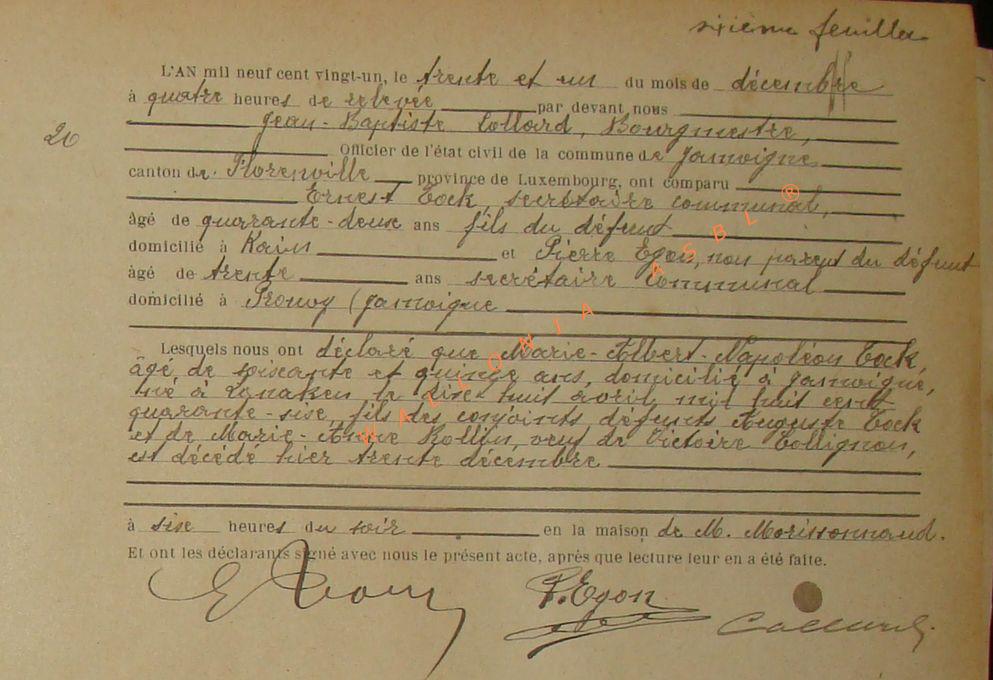 sixième feuillet
L'AN mil neuf cent vingt-un, le trente et un du mois de décembre
à quatre heures de relevée par devant nous
20
Jean-Baptiste Collard, Bourgmestre,
Officier de l'état civil de la commune de Jamoigne
canton de Florenville province de Luxembourg, ont comparu
Ernest Tock, secrétaire communal,
âgé de quarante-deux ans fils du défunt
domicilié à Kain et Pierre Egon, non parent du défunt
âgé de trente ans secrétaire communal
domicilié à Prouvy (Jamoigne
Lesquels nous ont déclaré que Marie-Albert-Napoléon Tock,
âgé de soixante et quinze ans, domicilié à Jamoigne,
né à Lanaken le dixe-huit avril mil huit cent
quarante-sixe, fils des conjoints défunts Auguste Tock
et de Marie-Anne Rollin, veuf de Victoire Collignon,
est décédé hier trente décembre
à sixe heures du soir en la maison de M. Morissonnaud.
Et ont les déclarants signé avec nous le présent acte, après que lecture leur en a été faite.
E Tock P. Egon Collard
WALLONIA ASBL ®